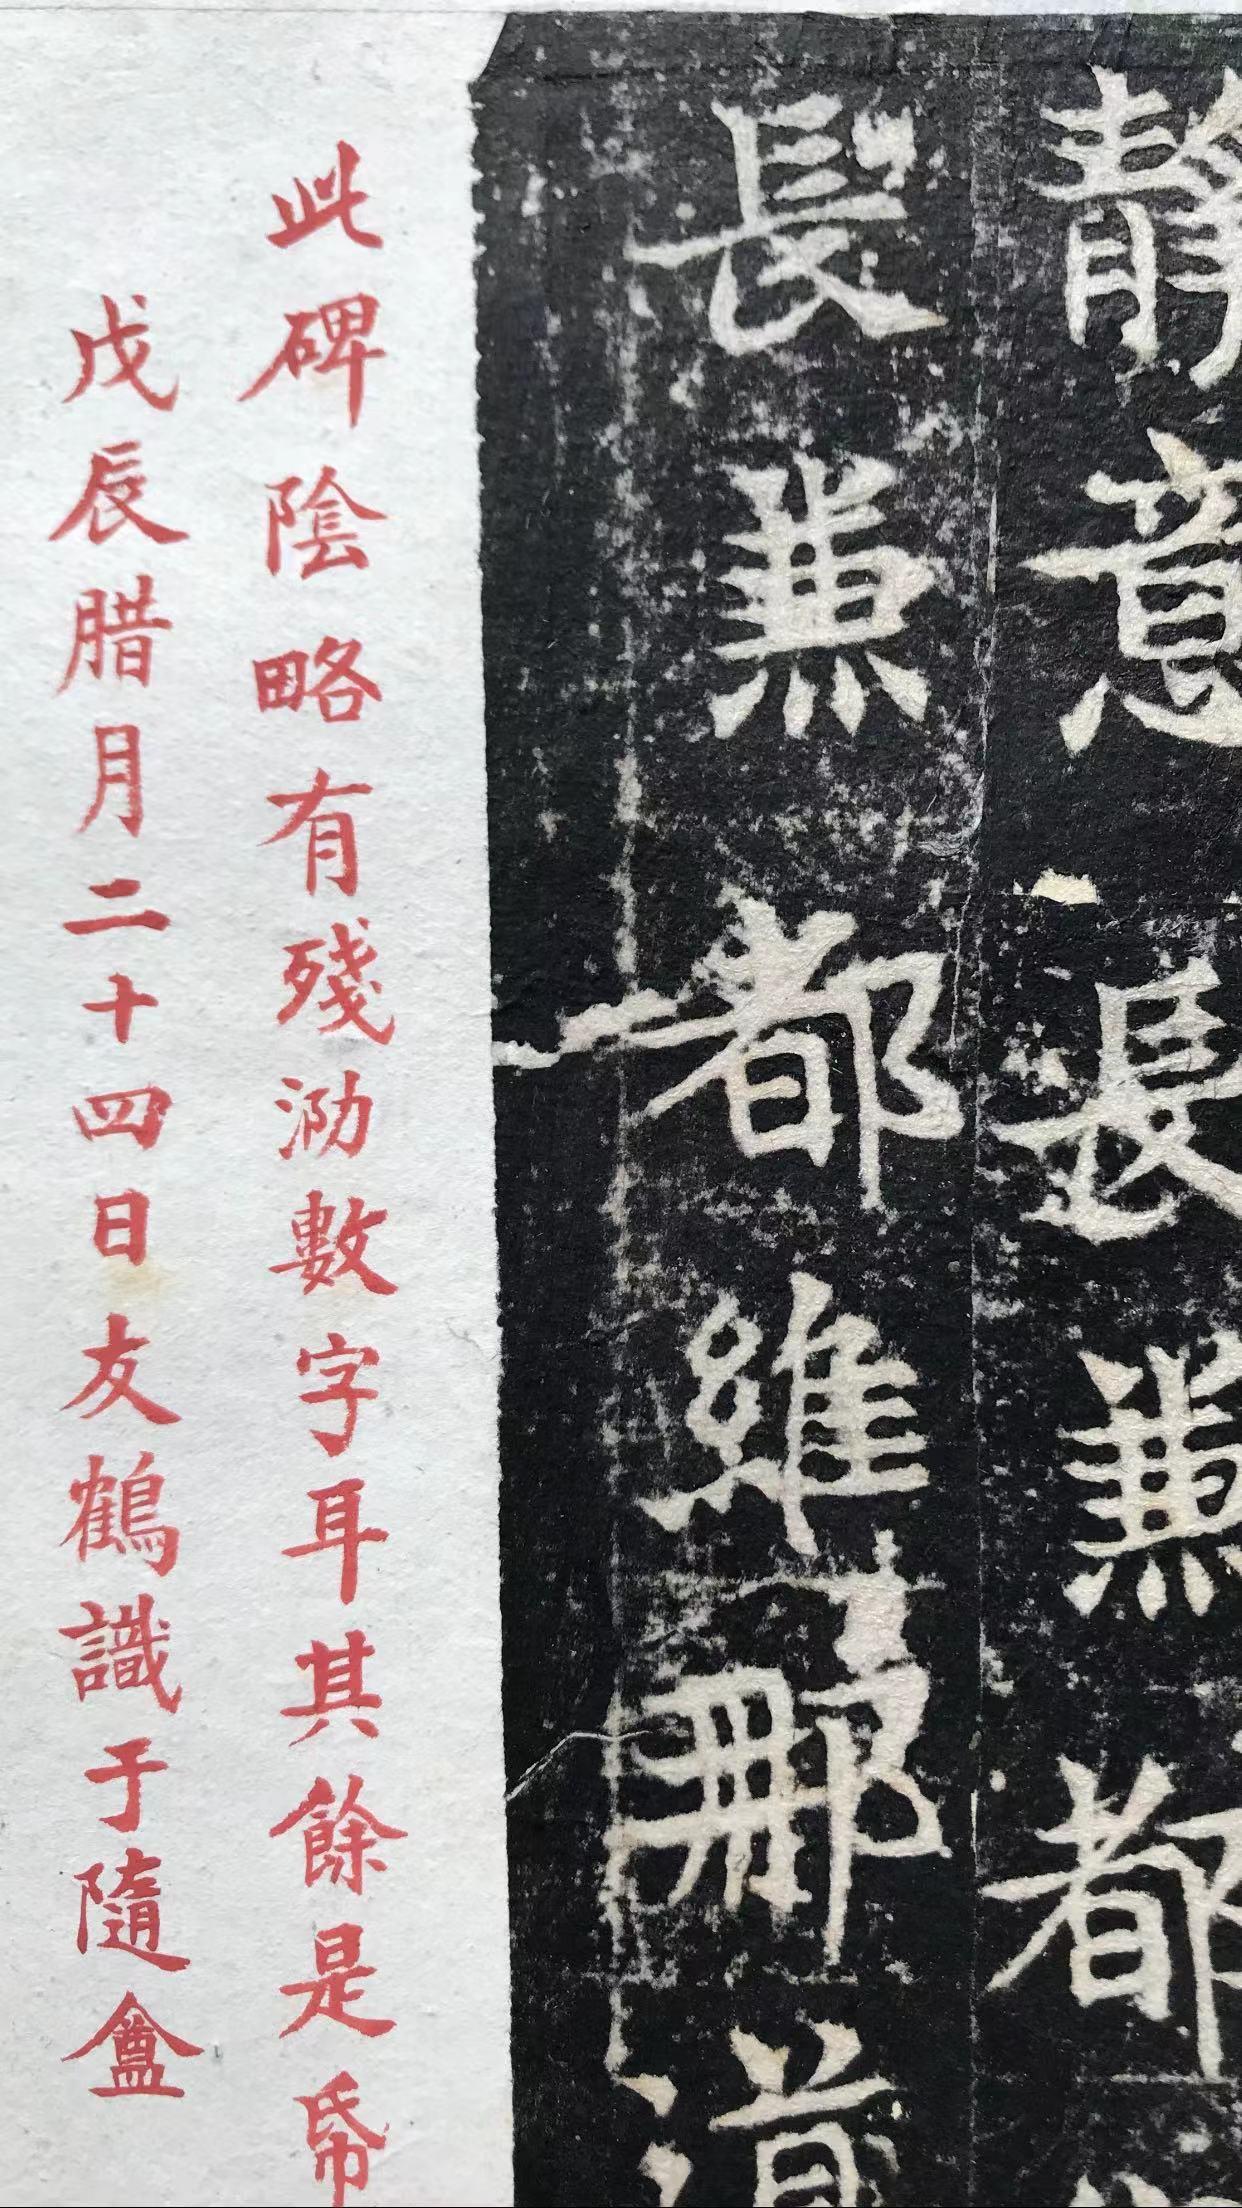 靜意長兼都
長兼都維那道
此碑陰略有殘泐數字耳其餘是帋
戊辰腊月二十四日友鶴識于隨盦